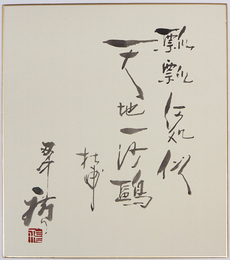 飄飄何所似
天地一沙鷗
杜甫